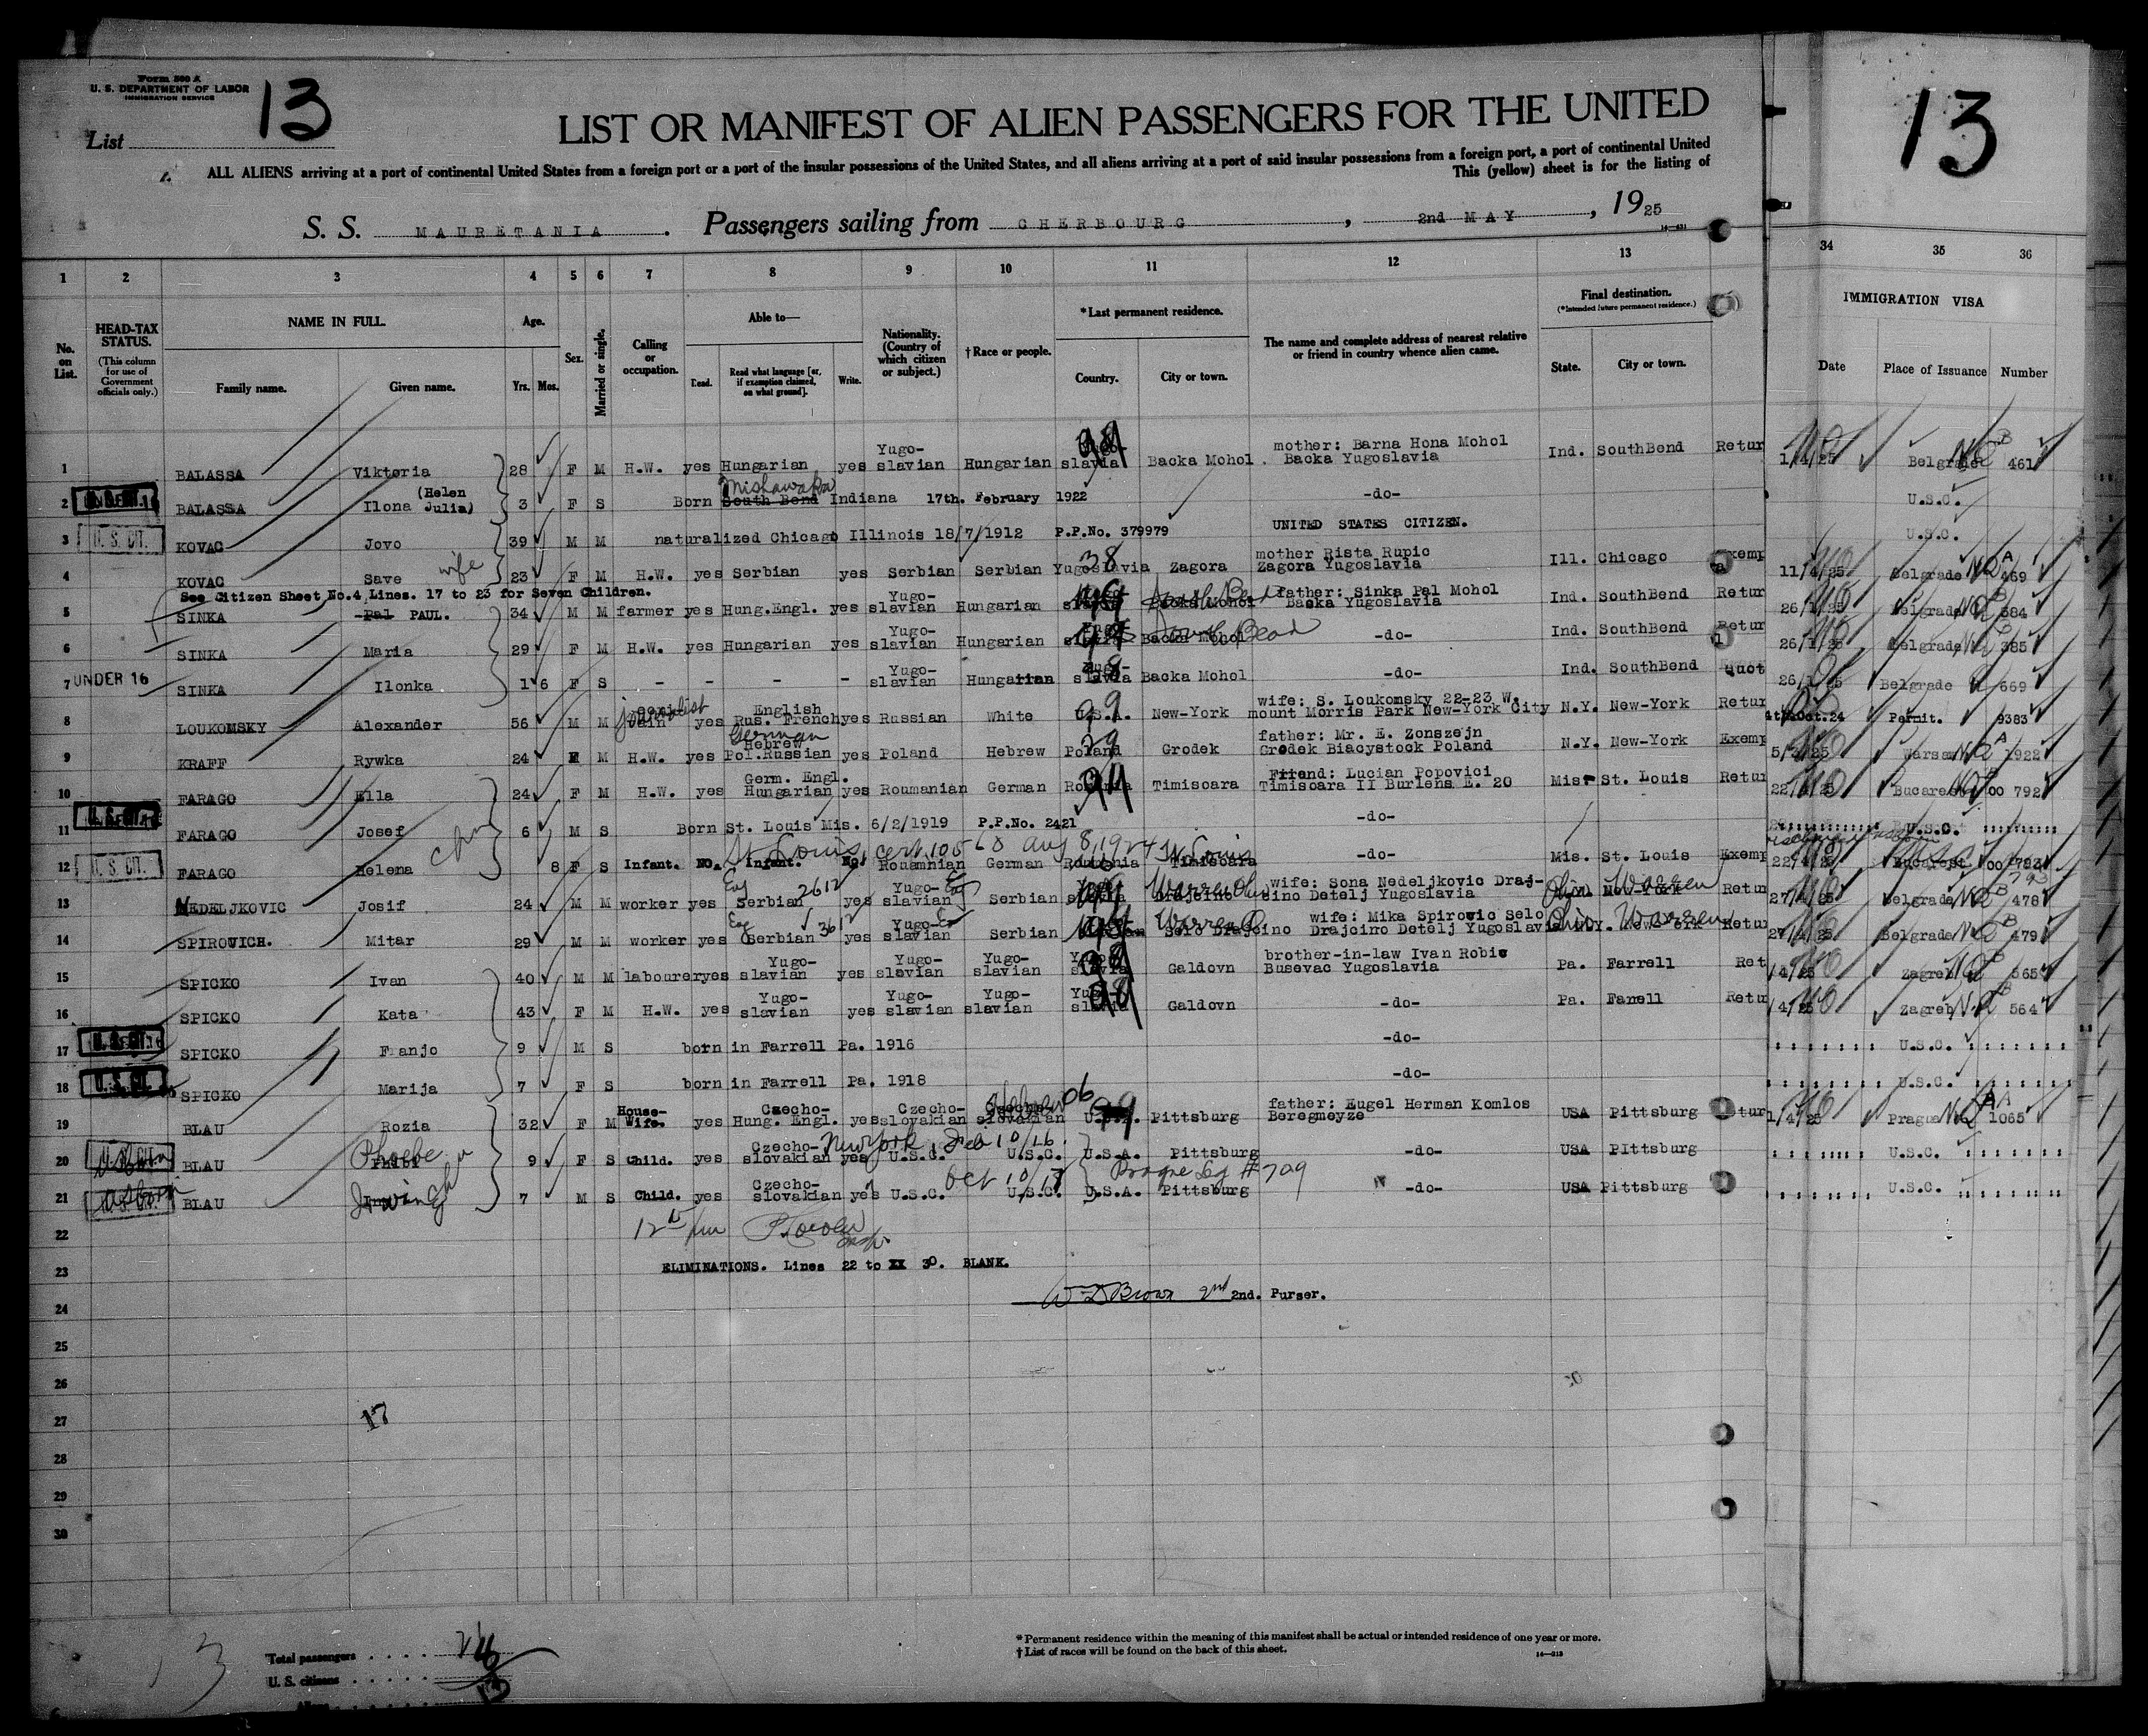 Form 500 A
U. S. DEPARTMENT OF LABOR
IMMIGRATION SERVICE
List 13
LIST OR MANIFEST OF ALIEN PASSENGERS FOR THE UNITED
13
ALL ALIENS arriving at a port of continental United States from a foreign port or a port of the insular possessions of the United States, and all aliens arriving at a port of said insular possessions from a foreign port, a port of continental United
This (yellow) sheet is for the listing of
S. S. MAURETANIA. Passengers sailing from CHERBOURG, 2nd MAY, 1925
1 2 3 4 5 6 7 8 9 10 11 12 13 34 35 36
No. on List.
HEAD-TAX STATUS.
(This column for use of Government officials only.)
NAME IN FULL.
Family name. Given name.
Age.
Yrs. Mos.
Sex.
Married or single.
Calling or occupation.
Able to—
Read. Read what language [or, if exemption claimed, on what ground]. Write.
Nationality. (Country of which citizen or subject.)
† Race or people.
*Last permanent residence.
Country. City or town.
The name and complete address of nearest relative or friend in country whence alien came.
Final destination.
(*Intended future permanent residence.)
State. City or town.
IMMIGRATION VISA
Date Place of Issuance Number
1 BALASSA Viktoria 28 F M H.W. yes Hungarian yes Yugo-slavian Hungarian slavia Backa Mohol. mother: Barna Hona Mohol Backa Yugoslavia Ind. SouthBend Retur 1/4/25 Belgrade 461
2 BALASSA Ilona (Helen Julia) 3 F S Born South Bend Mishawaka Indiana 17th. February 1922 -do- U.S.C.
3 U. S. CIT. KOVAC Jovo 39 M M naturalized Chicago Illinois 18/7/1912 P.P.No. 379979 UNITED STATES CITIZEN. U.S.C.
4 KOVAC Save wife 23 F M H.W. yes Serbian yes Serbian Serbian Yugoslavia Zagora mother Rista Rupic Zagora Yugoslavia Ill. Chicago Exemp 11/4/25 Belgrade 469
See Citizen Sheet No.4, Lines. 17 to 23 for Seven Children.
5 SINKA Pal PAUL. 34 M M farmer yes Hung.Engl. yes Yugo-slavian Hungarian Backa Mohol South Bend father: Sinka Pal Mohol Backa Yugoslavia Ind. SouthBend Retur 26/1/25 Belgrade 384
6 SINKA Maria 29 F M H.W. yes Hungarian yes Yugo-slavian Hungarian Backa Mohol South Bend -do- Ind. SouthBend Retur 26/1/25 Belgrade 385
7 UNDER 16 SINKA Ilonka 1 6 F S - - - - Yugo-slavian Hungarian slavia Backa Mohol -do- Ind. SouthBend Quot Belgrade 669
8 LOUKOMSKY Alexander 56 M M journalist yes English Rus. French yes Russian White U.S.A. New-York wife: S. Loukomsky 22-23 W. mount Morris Park New-York City N.Y. New-York Retur Oct.24 Permit. 9383
9 KRAFF Rywka 24 M H.W. yes German Hebrew Pol.Russian yes Poland Hebrew Poland Grodek father: Mr. E. Zonszejn Grodek Biacystock Poland N.Y. New-York Exemp Warsaw 1922
10 FARAGO Ella 24 F M H.W. yes Germ. Engl. Hungarian yes Roumanian German Timisoara Friend: Lucian Popovici Timisoara II Burlens E. 20 Mis. St. Louis Retur Bucarest 00 792
11 FARAGO Josef 6 M S Born St. Louis Mis. 6/2/1919 P.P.No. 2421 -do- U.S.C.
12 U. S. CIT. FARAGO Helena 8 F S Infant. NO. Infant. No. Roumanian German Roumania Timisoara -do- Mis. St. Louis Exemp Bucarest 00 793
St. Louis, cert. Aug 8, 1924 St. Louis
13 NEDELJKOVIC Josif 24 M M worker yes Serbian yes Yugo-slavian Serbian Drajcino Warren wife: Sona Nedeljkovic Draj-cino Detelj Yugoslavia Ohio New-York Warren Retur Belgrade 478
14 SPIROVICH. Mitar 29 M M worker yes Serbian yes Yugo-slavian Serbian Selo Drajcino Warren wife: Mika Spirovic Selo Drajcino Detelj Yugoslavia Ohio N.Y. New-York Warren Retur Belgrade 479
15 SPICKO Ivan 40 M M labourer yes Yugo-slavian yes Yugo-slavian Yugo-slavian Galdovn brother-in-law Ivan Robic Busevac Yugoslavia Pa. Farrell Ret Zagreb 565
16 SPICKO Kata 43 F M H.W. yes Yugo-slavian yes Yugo-slavian Yugo-slavian Galdovn -do- Pa. Farrell Retur Zagreb 564
17 SPICKO Franjo 9 M S born in Farrell Pa. 1916 -do- U.S.C.
18 SPICKO Marija 7 F S born in Farrell Pa. 1918 -do- U.S.C.
19 BLAU Rozia 32 F M House-Wife. yes Czecho- Hung. Engl. yes Czecho-slovakian Hebrew U.S.A. Pittsburg father: Eugel Herman Komlos Beregmeyze USA Pittsburg Retur Prague 1065
20 BLAU Phoebe 9 F S Child. yes Czecho-slovakian yes New York, Feb 10/16. U.S.C. U.S.C. U.S.A. Pittsburg -do- USA Pittsburg U.S.C.
21 BLAU Irwing 7 M S Child. yes Czecho-slovakian yes U.S.C. Oct 10/17 U.S.C. U.S.A. Pittsburg -do- USA Pittsburg U.S.C.
22
23 ELIMINATIONS. Lines 22 to XX 30. BLANK.
24 W D Brown 2nd 2nd. Purser.
25
26
27 17
28
29
30
Total passengers . . . .
U. S. citizens . . . . .
*Permanent residence within the meaning of this manifest shall be actual or intended residence of one year or more.
† List of races will be found on the back of this sheet.
13